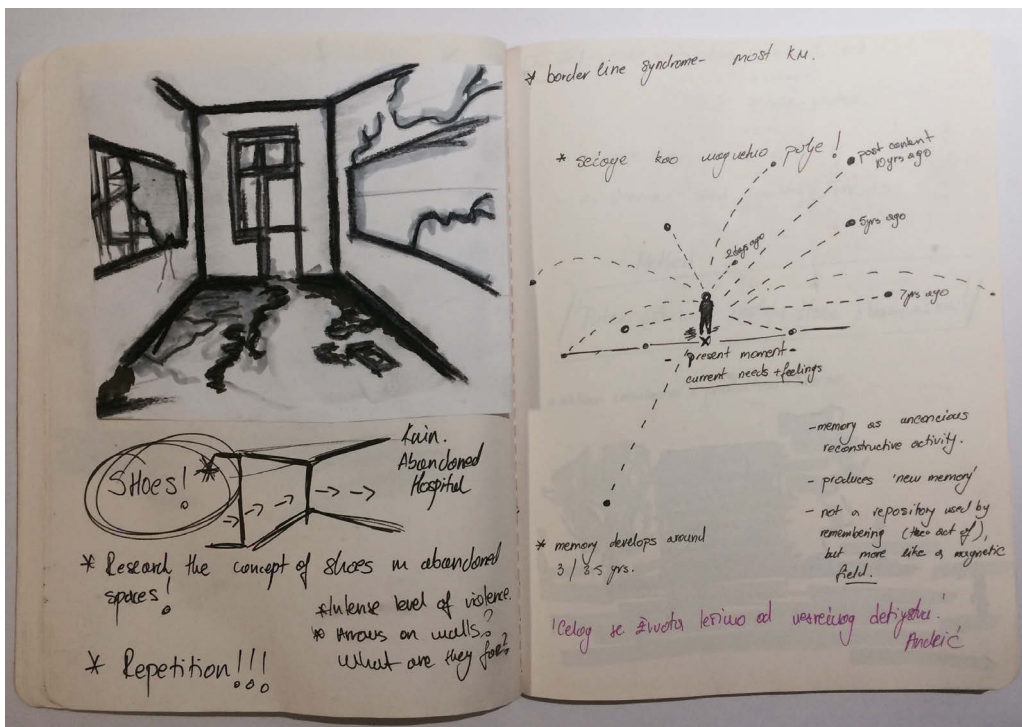 SHOES!
Ruin.
Abandoned
Hospital
* Research the concept of shoes in abandoned
spaces!
* Intense level of violence.
* Arrows on walls?
What are they for?
* Repetition!!!
* border line syndrome - most KM.
* sećanje kao magnetno polje!
past content
10yrs ago
5yrs ago
2 days ago
7yrs ago
- 'present moment -
current needs + feelings
- memory as unconcious
reconstructive activity.
- produces 'new memory'
- not a repository used by
remembering (the act of),
but more like a magnetic
field.
* memory develops around
3 / 3.5 yrs.
'Celog se života lečimo od nesrećnog detinjstva.'
Andrić